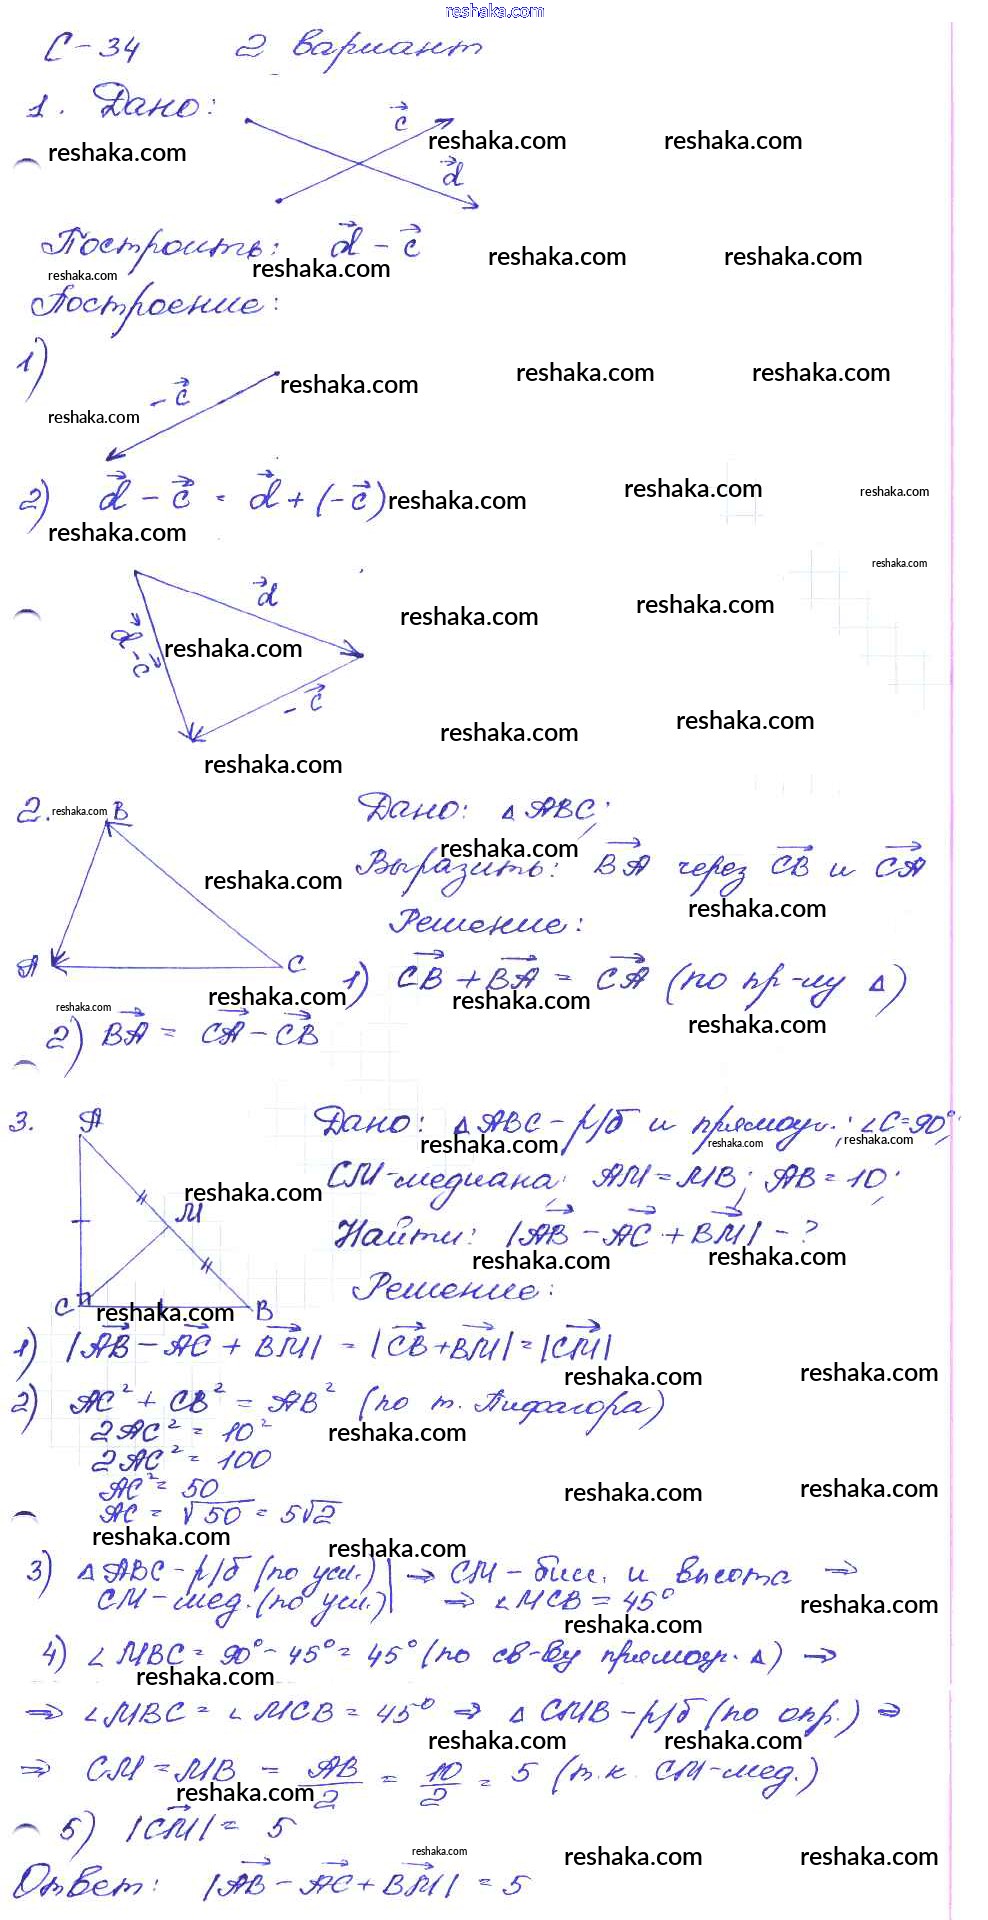 reshaka.com
С-34 2 вариант
1. Дано: c⃗ d⃗
Построить: d⃗ - c⃗
Построение:
1) -c⃗
2) d⃗ - c⃗ = d⃗ + (-c⃗)
d⃗
d⃗ - c⃗
-c⃗
2. B A C
Дано: △ABC;
Выразить: BA⃗ через CB⃗ и CA⃗
Решение:
1) CB⃗ + BA⃗ = CA⃗ (по пр-лу △)
2) BA⃗ = CA⃗ - CB⃗
3. A M C B
Дано: △ABC - р/б и прямоуг.; ∠C=90°;
CM-медиана; AM=MB; AB=10;
Найти: |AB⃗ - AC⃗ + BM⃗| - ?
Решение:
1) |AB⃗ - AC⃗ + BM⃗| = |CB⃗ + BM⃗| = |CM⃗|
2) AC² + CB² = AB² (по т. Пифагора)
2AC² = 10²
2AC² = 100
AC² = 50
AC = √50 = 5√2
3) △ABC - р/б (по усл.) | ⇒ CM - бисс. и высота ⇒
CM - мед. (по усл.) | ⇒ ∠MCB = 45°
4) ∠MBC = 90° - 45° = 45° (по св-ву прямоуг. △) ⇒
⇒ ∠MBC = ∠MCB = 45° ⇒ △CMB - р/б (по опр.) ⇒
⇒ CM = MB = AB/2 = 10/2 = 5 (т.к. CM-мед.)
5) |CM⃗| = 5
Ответ: |AB⃗ - AC⃗ + BM⃗| = 5